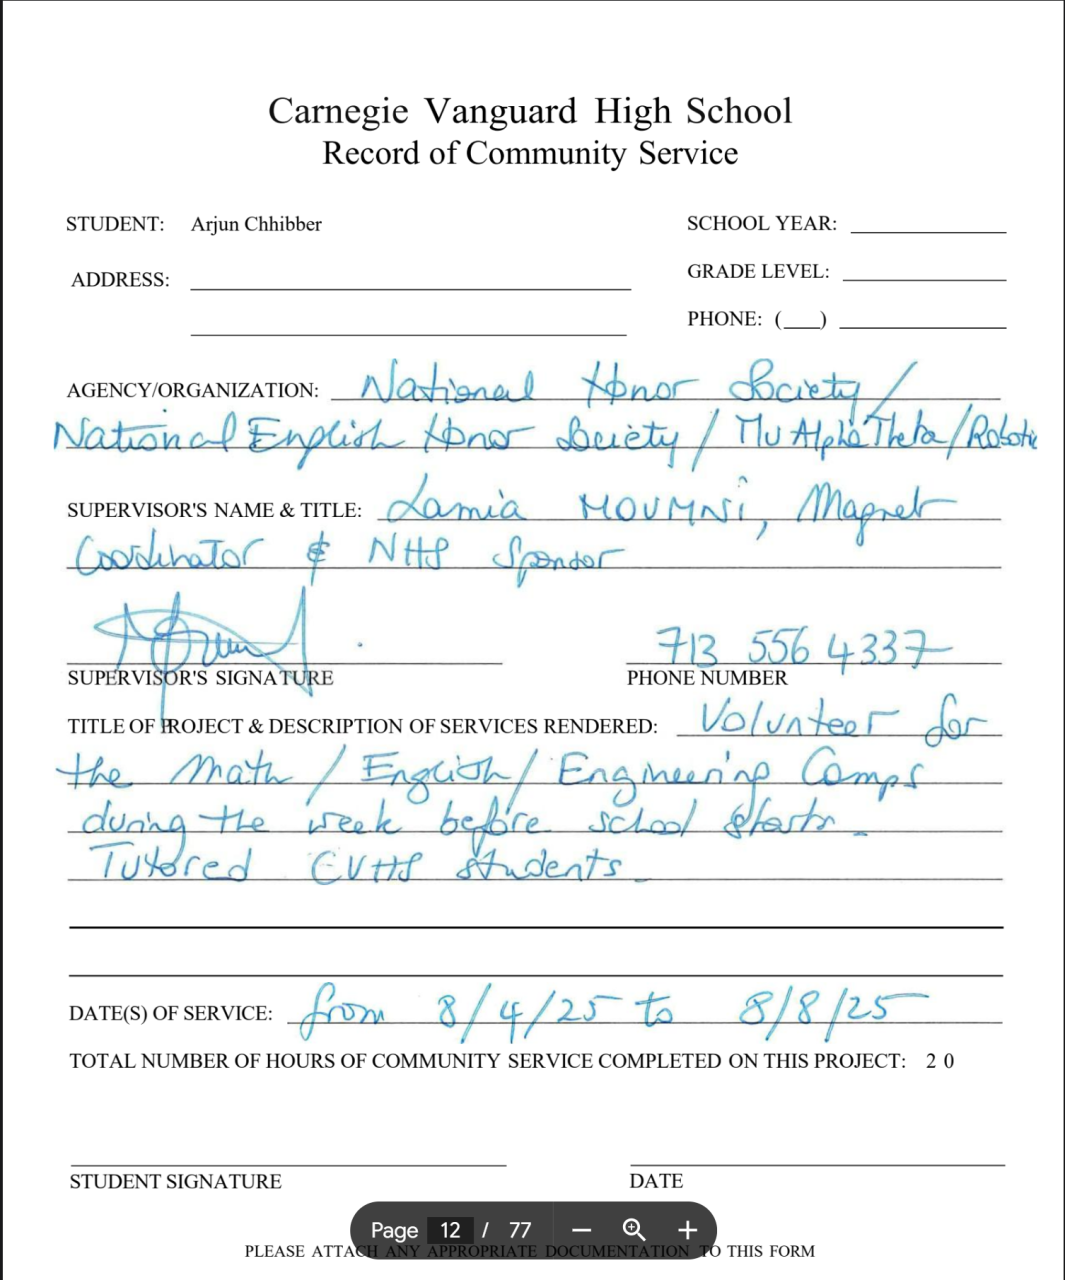 Carnegie Vanguard High School
Record of Community Service
STUDENT: Arjun Chhibber
SCHOOL YEAR:
ADDRESS:
GRADE LEVEL:
PHONE: ( )
AGENCY/ORGANIZATION: National Honor Society/
National English Honor Society / Mu Alpha Theta / Robotic
SUPERVISOR'S NAME & TITLE: Lamia MOUMNi, Magnet
Coordinator & NHS Sponsor
713 556 4337
SUPERVISOR'S SIGNATURE PHONE NUMBER
TITLE OF PROJECT & DESCRIPTION OF SERVICES RENDERED: Volunteer for
the Math / English / Engineering Camps
during the week before school starts.
Tutored CVHS students.
DATE(S) OF SERVICE: from 8/4/25 to 8/8/25
TOTAL NUMBER OF HOURS OF COMMUNITY SERVICE COMPLETED ON THIS PROJECT: 20
STUDENT SIGNATURE DATE
Page 12 / 77
PLEASE ATTACH ANY APPROPRIATE DOCUMENTATION TO THIS FORM